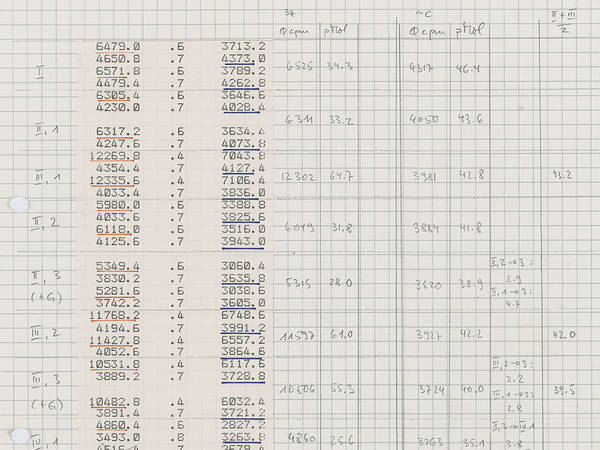 3H ¹⁴C II + III
Φ cpm pMol Φ cpm pMol 2
6479.0 .6 3713.2
4650.8 .7 4373.0
I 6525 34.3 4317 46.4
6571.8 .6 3789.2
4479.4 .7 4262.8
6305.4 .6 3646.6
4230.0 .7 4028.4
6311 33.2 4050 43.6
II, 1 6317.2 .6 3634.4
4247.6 .7 4073.8
12269.8 .4 7043.8
4354.4 .7 4127.4
III, 1 12335.6 .4 7106.4 12302 64.7 3981 42.8 43.2
4033.4 .7 3836.0
5980.0 .6 3388.8
4033.6 .7 3825.6
II, 2 6118.0 .6 3516.0 6049 31.8 3884 41.8
4125.6 .7 3943.0
5349.4 .6 3060.4 II,2→3:
II, 3 3830.2 .7 3635.8 5315 28.0 3620 38.9 2.9
5281.6 .6 3038.6 II,1→3:
(+G) 3742.2 .7 3605.0 4.7
11768.2 .4 6748.6
4194.6 .7 3991.2
III, 2 11597 61.0 3927 42.2 42.0
11427.8 .4 6557.2
4052.6 .7 3864.6
10531.8 .4 6117.6 III,2→3:
III, 3 3889.2 .7 3728.8 2.2
10506 55.3 3724 40.0 39.5
III,1→3:
(+G) 10482.8 .4 6032.4 2.8
3891.4 .7 3721.2
4860.4 .6 2827.2 II,3→IV1
IV, 1 3493.0 .8 3263.8 4860 25.6 3263 35.1 3.8